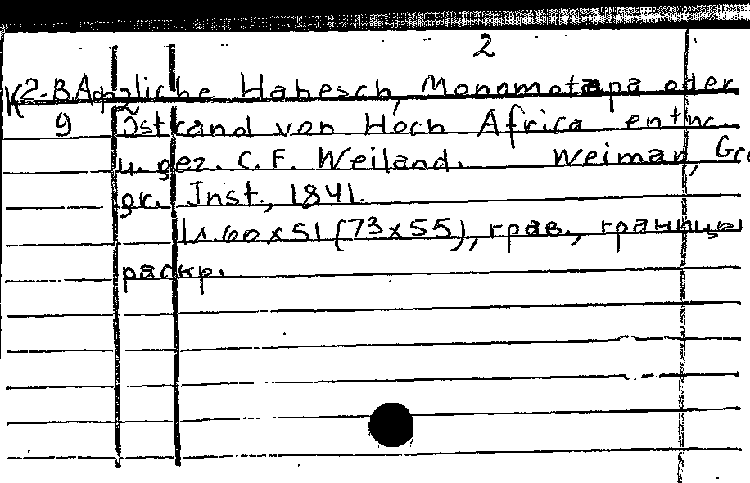 2
K2-В Аф Östliche Habesch, Monomotapa oder
9 Östrand von Hoch Africa entw.
u. gez. C. F. Weiland. Weimar, Geo
gr. Inst., 1841.
1 л. 60 x 51 (73 x 55), грав., границы
раскр.